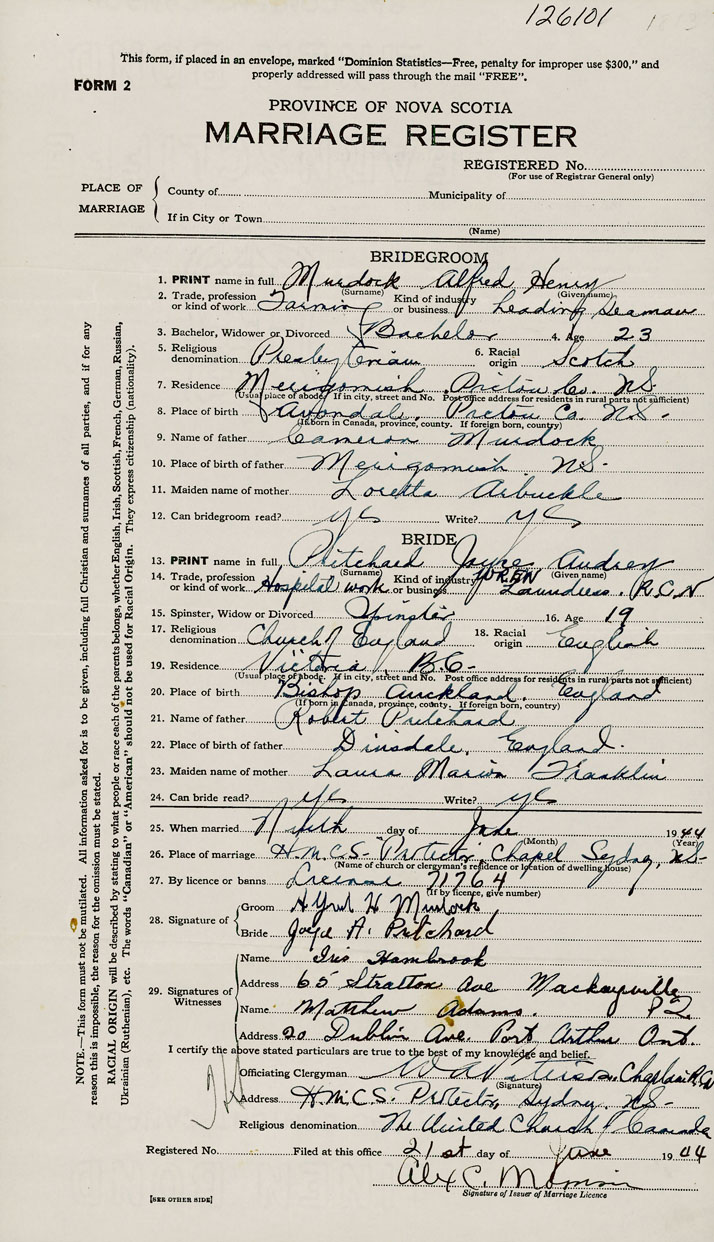 126101
This form, if placed in an envelope, marked "Dominion Statistics—Free, penalty for improper use $300," and
properly addressed will pass through the mail "FREE".
FORM 2
PROVINCE OF NOVA SCOTIA
MARRIAGE REGISTER
REGISTERED No.
(For use of Registrar General only)
PLACE OF MARRIAGE
County of Municipality of
If in City or Town
(Name)
BRIDEGROOM
1. PRINT name in full Murdock Alfred Henry
(Surname) (Given name)
2. Trade, profession or kind of work Farming Kind of industry or business Leading Seaman
3. Bachelor, Widower or Divorced Bachelor 4. Age 23
5. Religious denomination Presbyterian 6. Racial origin Scotch
7. Residence Merigomish Pictou Co. NS.
(Usual place of abode. If in city, street and No. Post office address for residents in rural parts not sufficient)
8. Place of birth Avondale, Pictou Co. NS-
(If born in Canada, province, county. If foreign born, country)
9. Name of father Cameron Murdock
10. Place of birth of father Merigomish NS-
11. Maiden name of mother Loretta Arbuckle
12. Can bridegroom read? yes Write? yes
BRIDE
13. PRINT name in full Pritchard Joyce Audrey
(Surname) (Given name)
14. Trade, profession or kind of work Hospital work Kind of industry or business WREN Laundress. R.C.N
15. Spinster, Widow or Divorced Spinster 16. Age 19
17. Religious denomination Church of England 18. Racial origin English
19. Residence Victoria B.C-
(Usual place of abode. If in city, street and No. Post office address for residents in rural parts not sufficient)
20. Place of birth Bishop Auckland. England
(If born in Canada, province, county. If foreign born, country)
21. Name of father Robert Pritchard
22. Place of birth of father Dinsdale, England.
23. Maiden name of mother Laura Marion Franklin
24. Can bride read? yes Write? yes
25. When married Ninth day of June 1944
(Month) (Year)
26. Place of marriage H.M.C.S- Protector, Chapel Sydney, NS-
(Name of church or clergyman's residence or location of dwelling house)
27. By licence or banns License 71764
(If by licence, give number)
28. Signature of
Groom Alfred H Murdock
Bride Joyce A. Pritchard
29. Signatures of Witnesses
Name Iris Hambrook
Address 65 Stratton Ave Mackayville
PQ
Name Matthew Adams.
Address 20 Dublin Ave. Port Arthur Ont.
I certify the above stated particulars are true to the best of my knowledge and belief.
Officiating Clergyman Chaplain
(Signature)
Address H.M.C.S. Protector, Sydney. NS-
Religious denomination The United Church of Canada
Registered No. Filed at this office 21st day of June 1944
Alex C.
Signature of Issuer of Marriage Licence
[SEE OTHER SIDE]
NOTE.—This form must not be mutilated. All information asked for is to be given, including full Christian and surnames of all parties, and if for any
reason this is impossible, the reason for the omission must be stated.
RACIAL ORIGIN will be described by stating to what people or race each of the parents belongs, whether English, Irish, Scottish, French, German, Russian,
Ukrainian (Ruthenian), etc. The words "Canadian" or "American" should not be used for Racial Origin. They express citizenship (nationality).